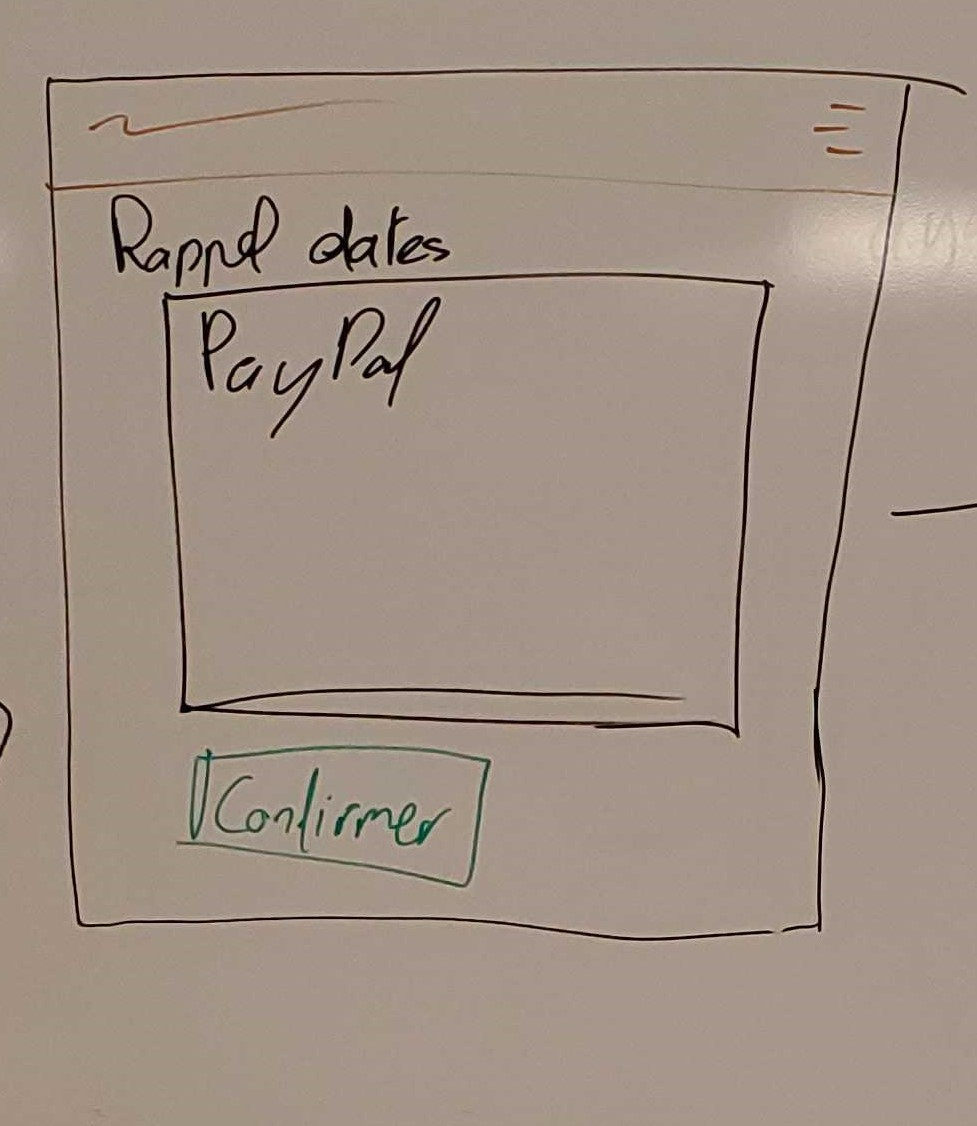 Rappel dates
PayPal
Confirmer